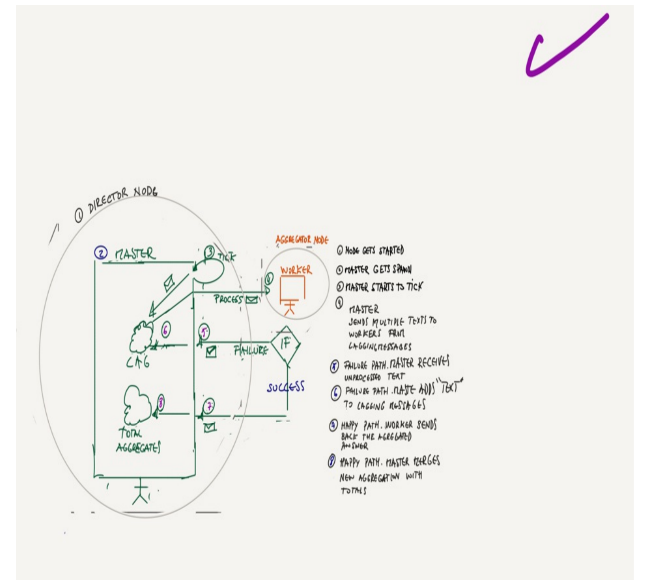 ① DIRECTOR NODE
② MASTER
③ TICK
AGGREGATOR NODE
④ WORKER
PROCESS
⑥
LAG
⑤
FAILURE
IF
SUCCESS
⑧
TOTAL
AGGREGATES
⑦
① NODE GETS STARTED
② MASTER GETS SPAWN
③ MASTER STARTS TO TICK
④ MASTER
SENDS MULTIPLE TEXTS TO
WORKERS FROM
LAGGINGMESSAGES
⑤ FAILURE PATH. MASTER RECEIVES
UNPROCESSED TEXT
⑥ FAILURE PATH. MASTE ADDS "TEXT"
TO LAGGING MESSAGES
⑦ HAPPY PATH. WORKER SENDS
BACK THE AGREGATED
ANSWER
⑧ HAPPY PATH. MASTER MERGES
NEW AGGREGATION WITH
TOTALS